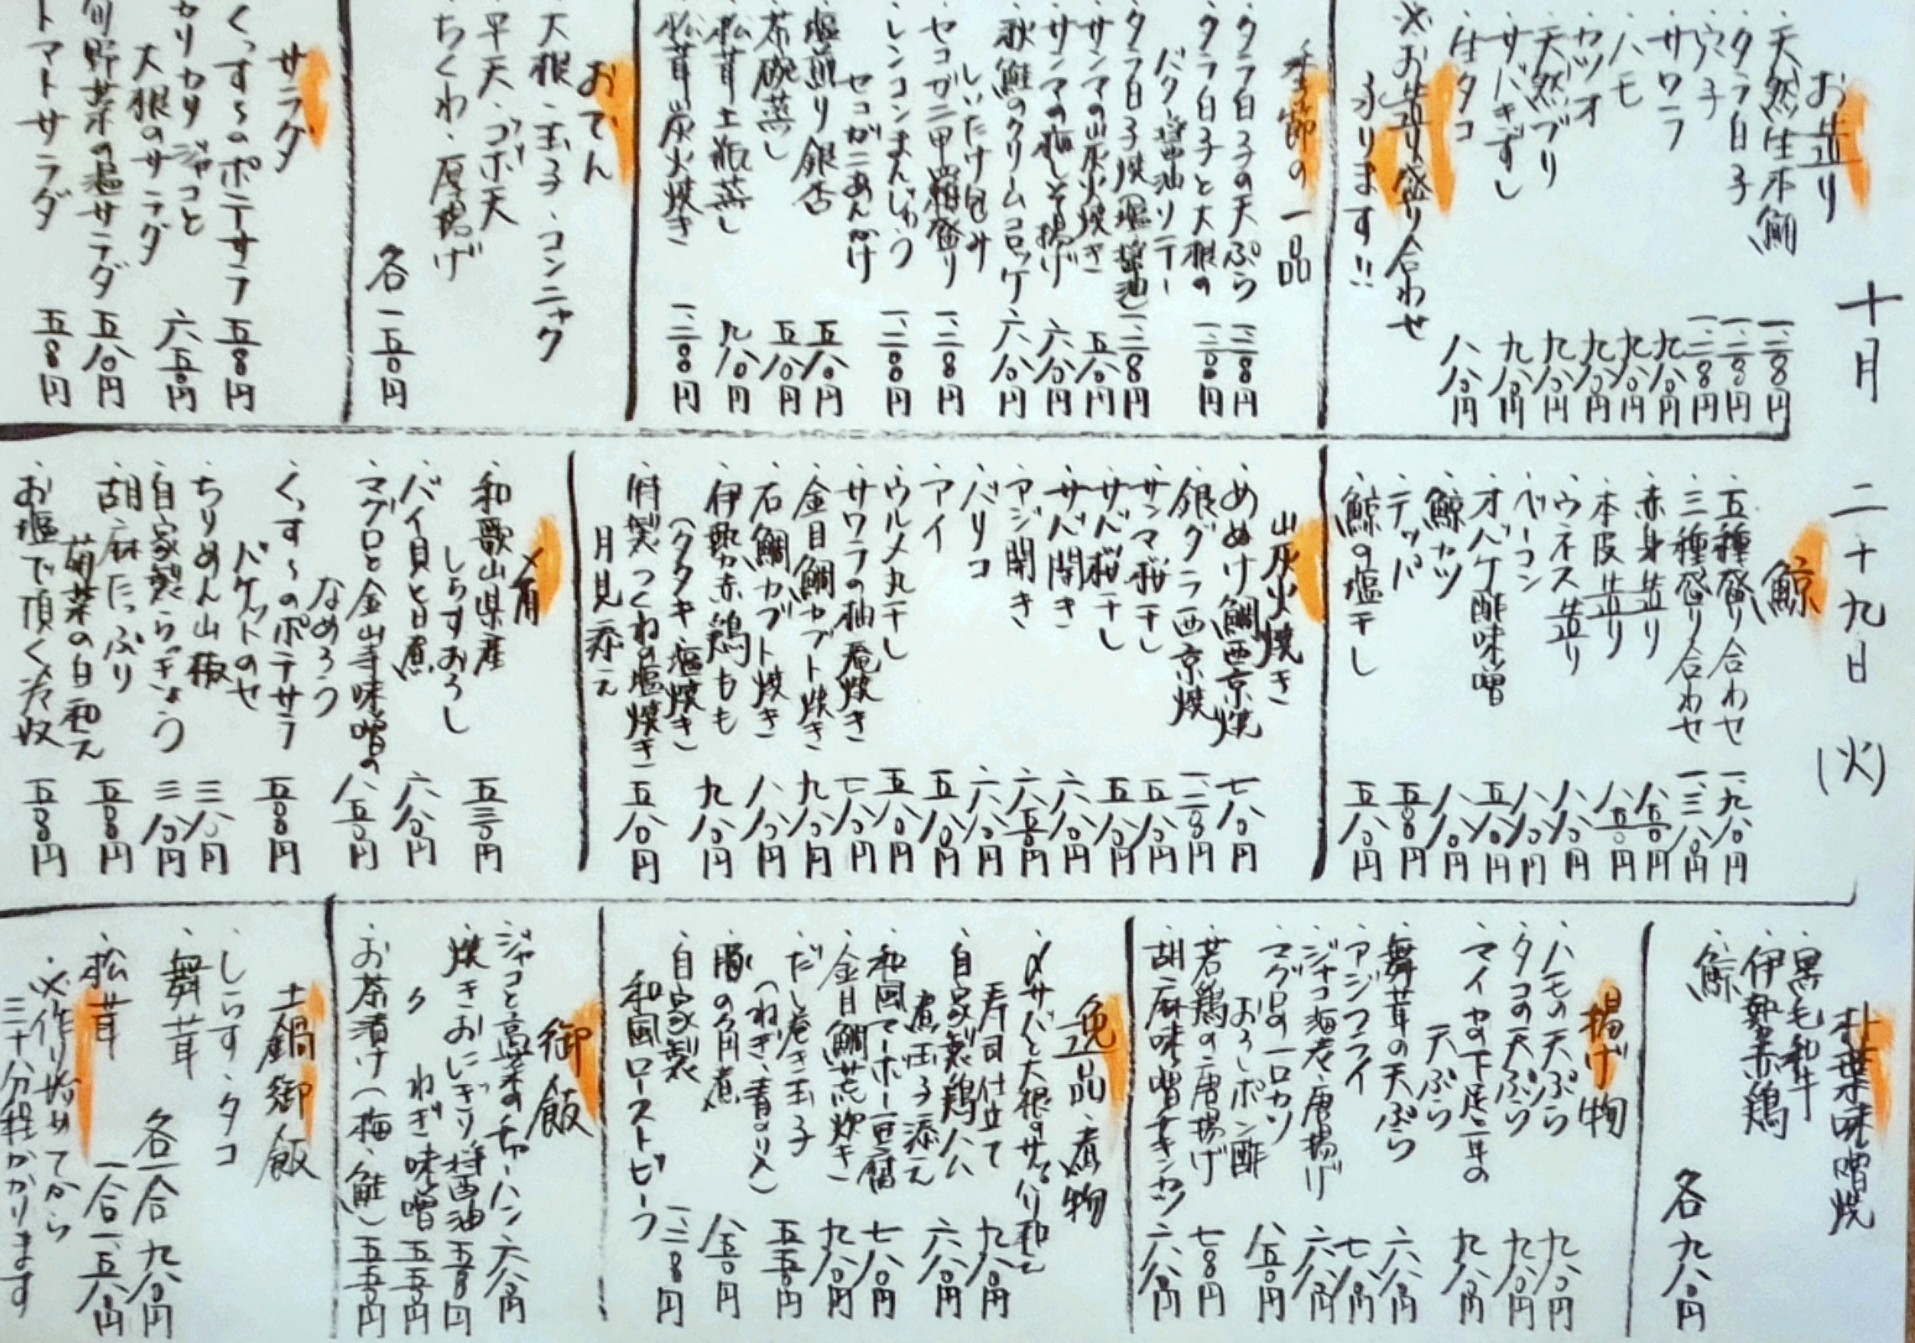 十月 二十九日 (火)
お造り
・天然生本鮪 一、二八〇円
・タラ白子 一、二八〇円
・ウニ 一、二八〇円
・サワラ 九八〇円
・ハモ 九八〇円
・カツオ 九八〇円
・天然ブリ 九八〇円
・サバきずし 九八〇円
・生タコ 八八〇円
※お造り盛り合わせ
承ります!!
季節の一品
・タラ白子の天ぷら 一、二八〇円
・タラ白子と大根の
バター醤油ソテー 一、二八〇円
・タラ白子焼(塩、醤油) 一、二八〇円
・サンマの炭火焼き 五八〇円
・サンマの梅しそ揚げ 六八〇円
・秋鮭のクリームコロッケ 六八〇円
しいたけ包み
・セコガニ甲羅盛り 一、二八〇円
・レンコンまんじゅう
セコガニあんかけ 一、二八〇円
・塩煎り銀杏 五八〇円
・茶碗蒸し 五八〇円
・松茸土瓶蒸し 九八〇円
・松茸炭火焼き 一、二八〇円
おでん
・大根・玉子・コンニャク
・平天・ゴボ天
・ちくわ・厚揚げ
各一五〇円
サラダ
・くっす〜のポテサラ 五八〇円
カリカリジャコと
大根のサラダ 六五〇円
旬野菜の塩サラダ 五八〇円
トマトサラダ 五八〇円
鯨
・五種盛り合わせ 一、九八〇円
・三種盛り合わせ 一、三八〇円
・赤身造り 八五〇円
・本皮造り 八五〇円
・ウネス造り 八八〇円
・ベーコン 八八〇円
・オバケ酢味噌 五八〇円
・鯨カツ 八八〇円
・テッパ 五八〇円
・鯨の塩干し 五八〇円
炭火焼き
・めぬけ鯛西京焼 七八〇円
・銀ダラ西京焼 一、二八〇円
・サンマ桜干し 五八〇円
・サバ桜干し 五八〇円
・サバ開き 六八〇円
・アジ開き 六五〇円
・バリコ 六八〇円
・アイ 五八〇円
・ウルメ丸干し 五八〇円
・サワラの柚庵焼き 七八〇円
・金目鯛カブト焼き 九八〇円
・石鯛カブト焼き 八八〇円
・伊勢赤鶏もも
(タタキ・塩焼き) 九八〇円
・特製つくねの塩焼き
月見添え 五八〇円
〆肴
・和歌山県産
しらすおろし 五三〇円
・バイ貝と旨煮 六八〇円
・マグロと金山寺味噌の
なめろう 八五〇円
・くっす〜のポテサラ
バケットのせ 五八〇円
・ちりめん山椒 三八〇円
・自家製らっきょう 三八〇円
・胡麻たっぷり
菊菜の白和え 五八〇円
・お塩で頂く冷奴 五八〇円
朴葉味噌焼
・黒毛和牛
・伊勢赤鶏
・鯨
各九八〇円
揚げ物
・ハモの天ぷら 九八〇円
・タコの天ぷら 九八〇円
・マイカの下足と耳の
天ぷら 九八〇円
・舞茸の天ぷら 六八〇円
・アジフライ 七八〇円
・ジャコ海老唐揚げ 六八〇円
・マグロの一口カツ
おろしポン酢 八五〇円
・若鶏の唐揚げ 七八〇円
・胡麻味噌チキンカツ 六八〇円
逸品・煮物
・〆サバと大根のサッパリ和え
寿司仕立て 九八〇円
・自家製鶏ハム
煮玉子添え 六八〇円
・和風マーボー豆腐 七八〇円
・金目鯛荒炊き 九八〇円
・だし巻き玉子
(ねぎ、青のり入) 五五〇円
・豚の角煮 八五〇円
・自家製
和風ローストビーフ 一、二八〇円
御飯
・ジャコと高菜のチャーハン 六八〇円
・焼きおにぎり 醤油 五五〇円
〃 ねぎ味噌 五五〇円
・お茶漬け(梅、鮭) 五五〇円
土鍋御飯
・しらす・タコ
・舞茸 各一合 九八〇円
・松茸 一合 一、五八〇円
※作り始めてから
三十分程かかります